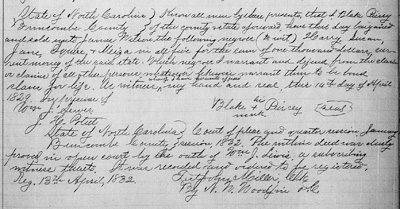 State of North Carolina } Know all men by these presents, that I Blake Piercy
Buncombe County } of the county & state aforesaid have this day bargained
and sold unto James the following negroes (to wit) Harry, Susan,
Jane, & Eliza in all five for the sum of one thousand dollars, cur-
rent money of the said state. Which negroes I warrant and defend from the claim
or claims of all other persons whatsoever warrant them to be bond
slaves for life. As witness my hand and seal, this 14th day of April
1829. In presence of
Wm Blake his Piercy (seal)
J. mark
State of North Carolina } Court of pleas and quarter session January
Buncombe County, } session 1832. The within deed was duly
proved in open court by the oath of Wm J. a subscribing
witness thereto. It was recorded and ordered to be registered.
Reg. 13th April, 1832 John Miller, Clk
By N. W. Woodfin D.C.